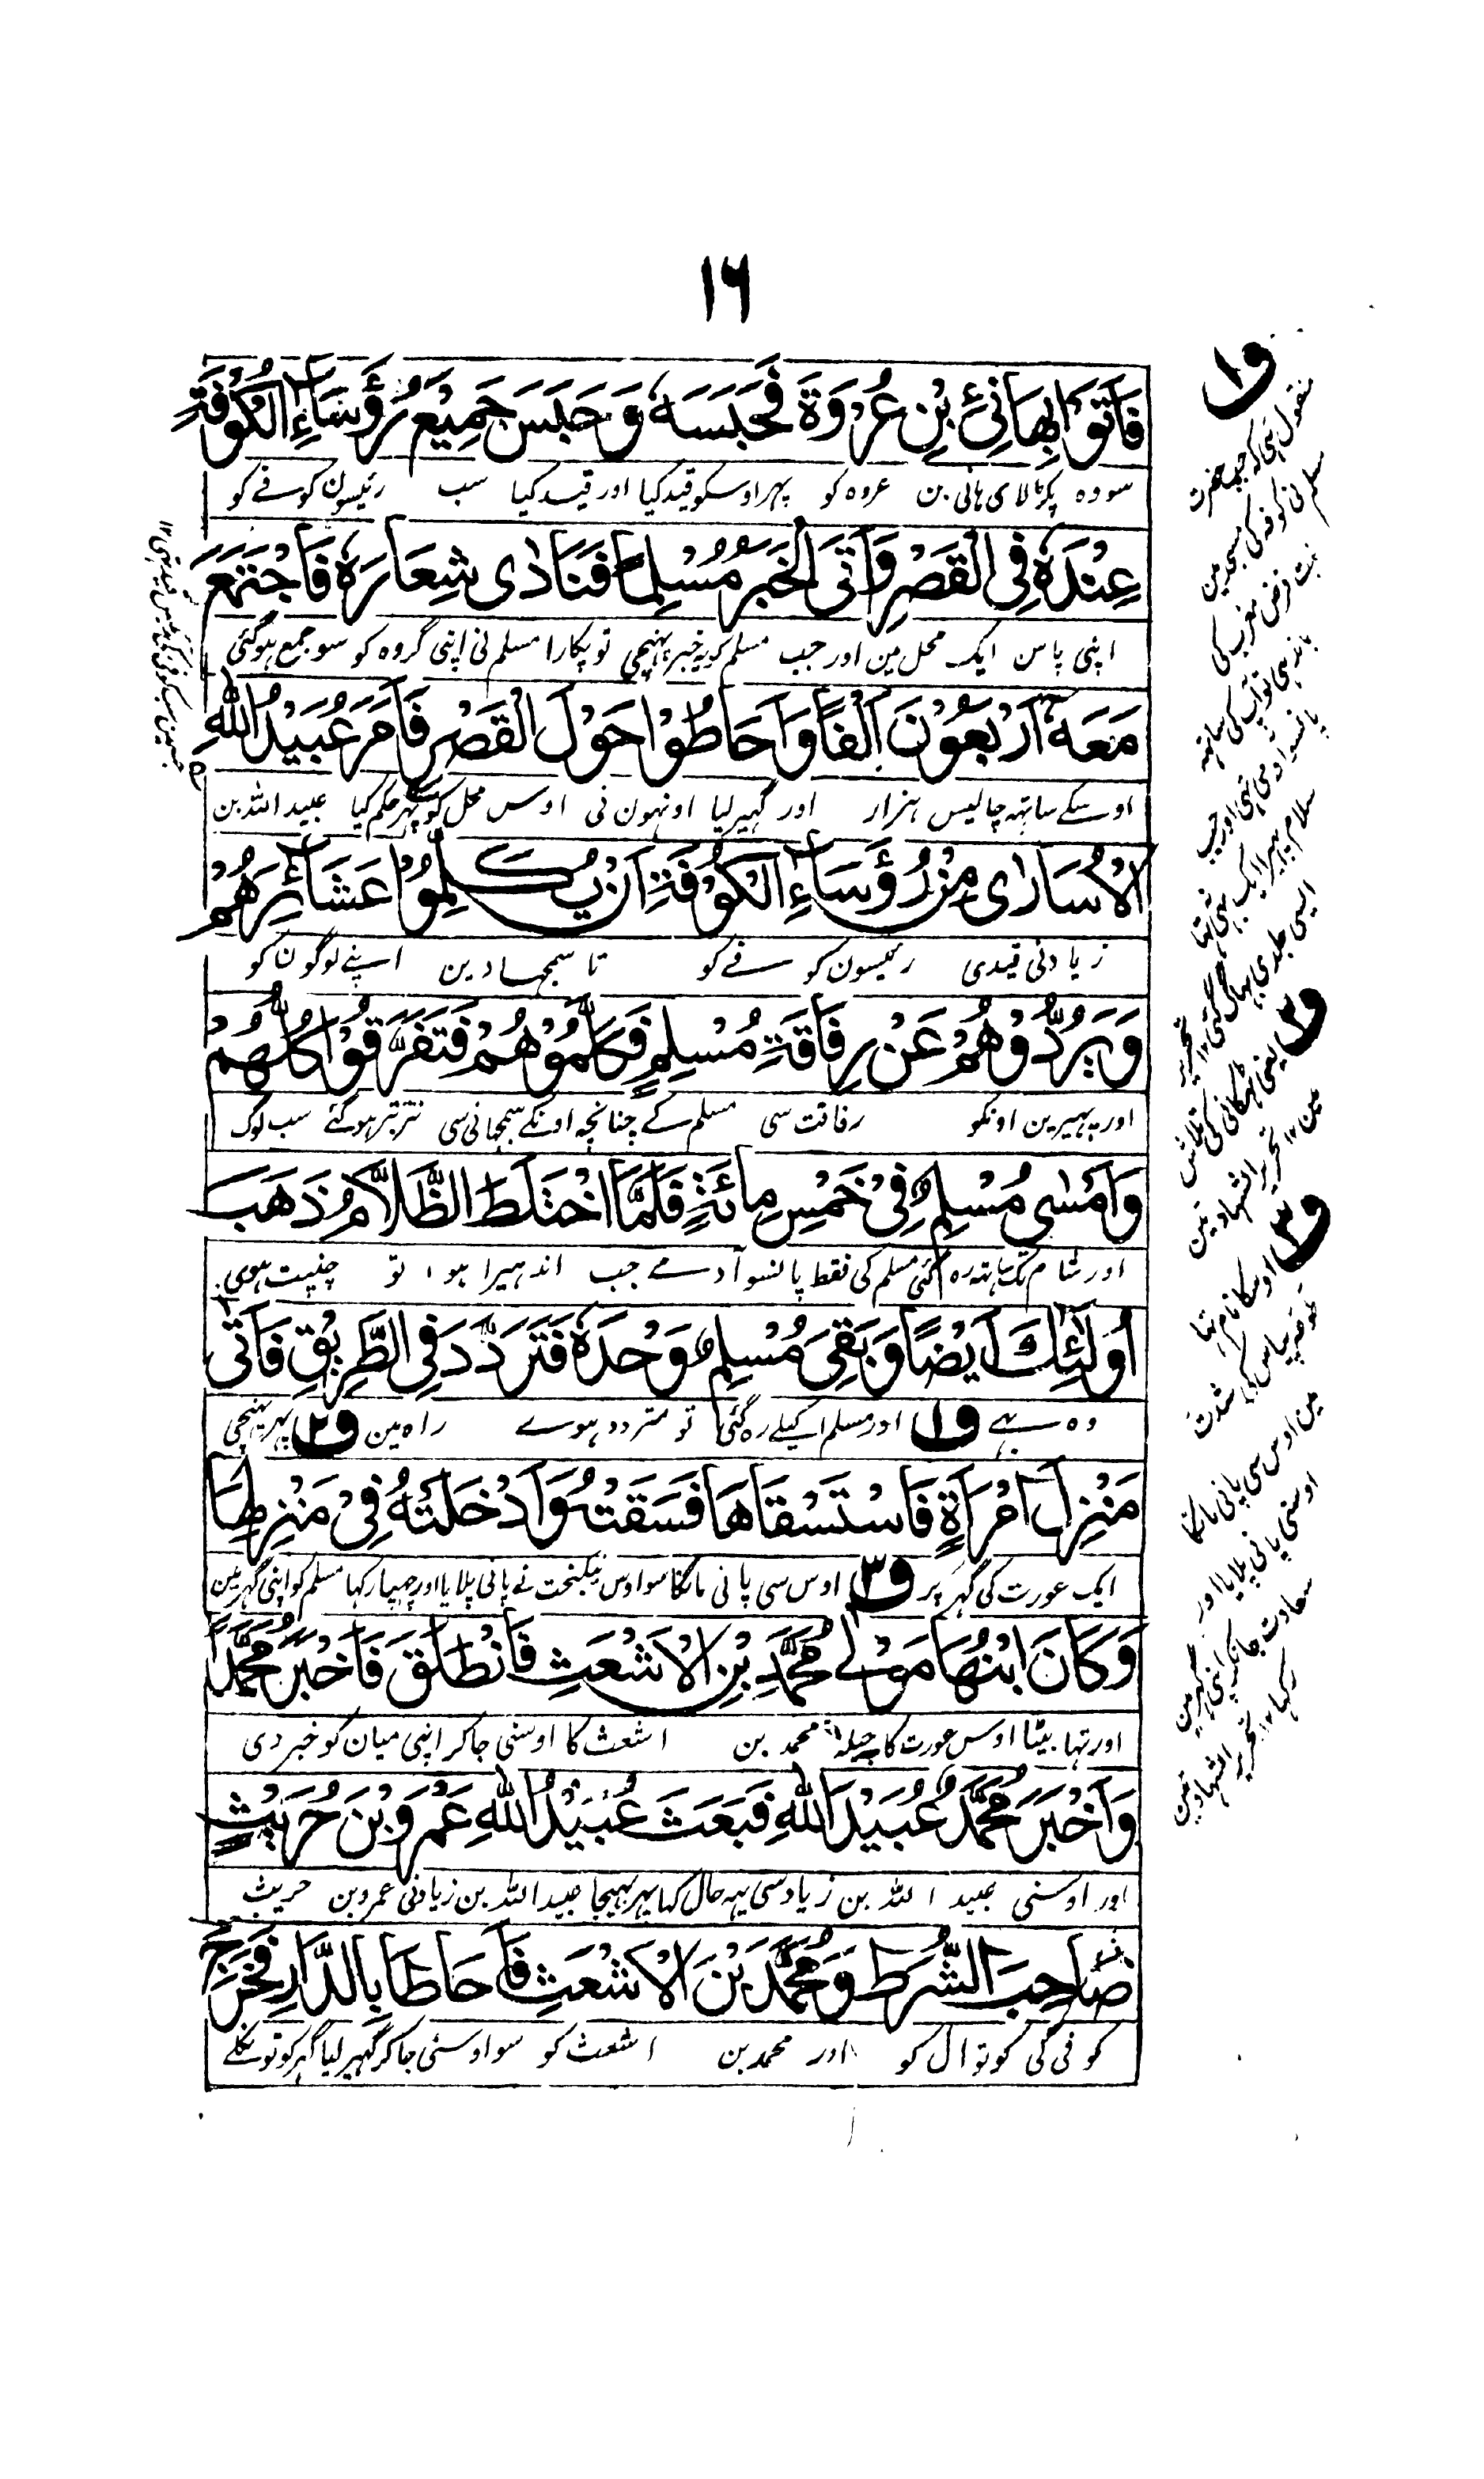 ١٦
فَاَتَوْا بِهَانِئِ بْنِ عُرْوَةَ فَحَبَسَهٗ وَحَبَسَ جَمِيْعَ رُؤَسَاءِ الْكُوْفَةِ
سو وہ پکڑ لای ہانی بن عروہ کو پہر اوسکو قید کیا اور قید کیا سب رئیسون کوفے کو
عِنْدَهٗ فِى الْقَصْرِ وَاَتَى الْخَبَرُ مُسْلِمًا فَنَادٰى شِعَارَهٗ فَاجْتَمَعَ
اپنی پاس ایک محل مین اور جب مسلم کو یہ خبر پہنچی تو پکارا مسلم نی اپنی گروہ کو سو جمع ہو گئی
مَعَهٗ اَرْبَعُوْنَ اَلْفًا وَاَحَاطُوْا حَوْلَ الْقَصْرِ فَاَمَرَ عُبَيْدُ اللّٰهِ
اوسکے ساتہہ چالیس ہزار اور گہیر لیا اونہون نی اوس محل کو پہر حکم کیا عبید اللہ بن
الْاُسَارٰى مِنْ رُؤَسَاءِ الْكُوْفَةِ اَنْ يُكَلِّمُوْا عَشَائِرَهُمْ
زیاد نی قیدی رئیسون کوفے کو تا سمجہادین اپنے لوگون کو
وَيَرُدُّوْهُمْ عَنْ رِفَاقَةِ مُسْلِمٍ فَكَلَّمُوْهُمْ فَتَفَرَّقُوْا كُلُّهُمْ
اور پہیرین اونکو رفاقت سی مسلم کے چنانچہ اونکے سمجہانی سی تتر بتر ہو گئے سب لوگ
وَاَمْسٰى مُسْلِمٌ فِىْ خَمْسِ مِائَةٍ فَلَمَّا اخْتَلَطَ الظَّلَامُ ذَهَبَ
اور شام تک ساتہہ رہ گئی مسلم کی فقط پانسو آدمے جب اندہیرا ہوا تو چنپت ہوی
اُولٰئِكَ اَيْضًا وَبَقِىَ مُسْلِمٌ وَحْدَهٗ فَتَرَدَّدَ فِى الطَّرِيْقِ فَاَتٰى
وہ بہے ف۱ اور مسلم اکیلے رہ گئی تو متردد ہوے راہ مین ف۲ پہر پہنچی
مَنْزِلَ امْرَاَةٍ فَاسْتَسْقَاهَا فَسَقَتْهُ وَاَدْخَلَتْهُ فِىْ مَنْزِلِهَا
ایک عورت کی گہر پر ف۳ اوس سی پانی مانگا سو اوس نیکبخت نے پانی پلایا اور چہپار کہا مسلم کو اپنی گہر مین
وَكَانَ ابْنُهَا مَوْلٰى مُحَمَّدِ بْنِ الْاَشْعَثِ فَانْطَلَقَ فَاَخْبَرَ مُحَمَّدًا
اور تہا بیٹا اوس عورت کا چیلہ محمد بن اشعث کا اوسنی جا کر اپنی میان کو خبر دی
وَاَخْبَرَ مُحَمَّدٌ عُبَيْدَ اللّٰهِ فَبَعَثَ عُبَيْدُ اللّٰهِ عَمْرَو بْنَ حُرَيْثٍ
اور اوسنی عبید اللہ بن زیاد سی یہہ حال کہا پہر بہیجا عبید اللہ بن زیاد نی عمرو بن حریث
صَاحِبَ الشُّرَطِ وَمُحَمَّدَ بْنَ الْاَشْعَثِ فَاَحَاطَا بِالدَّارِ فَخَرَجَ
کوفی کی کوتوال کو اور محمد بن اشعث کو سو اوسنی جا کر گہیر لیا گہر کو تو نکلے
ف۱
منقول ہی کہ جب حضرت
مسلم نی کوفہ کی مسجد مین
نیت فرض مغرب کی
باندہی تو آپ کی ساتہہ
پانسو آدمی تہی اور جب
سلام پہیرا ایک بہی نہ تہا
ایسی جلدی بہاگ گئی ۱۲ تحریر
ف۲ یعنی ٹہکانی کی تلاش
مین ۱۲ تحریر الشہادتین
ف۳ اوسکا نام تہا
طوعہ پیاس کی شدت
مین اوس سی پانی مانگا
اوسنی پانی پلایا اور
سعادت جانکر اپنی گہر مین
رکہا ۱۲ تحریر الشہادتین